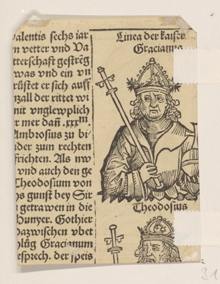 alentis sechs iar
n vetter vnd va
tterschafft gestreg
was vnd ein vn
rüstet er sich auff
nzall der ritter wi
nit vnglewplich
r mer dañ .xxxiii.
Ambrosius zu bi
der zum rechten
frichten. Als nw
vnd auch den ge
Theodosium von
s gunst bey Sir
getrawen in die
Hunger. Gothier
dazwischen vbet
Gracianum
gesprech. der speis
Linea der kaiser
Gracianus
Theodosius